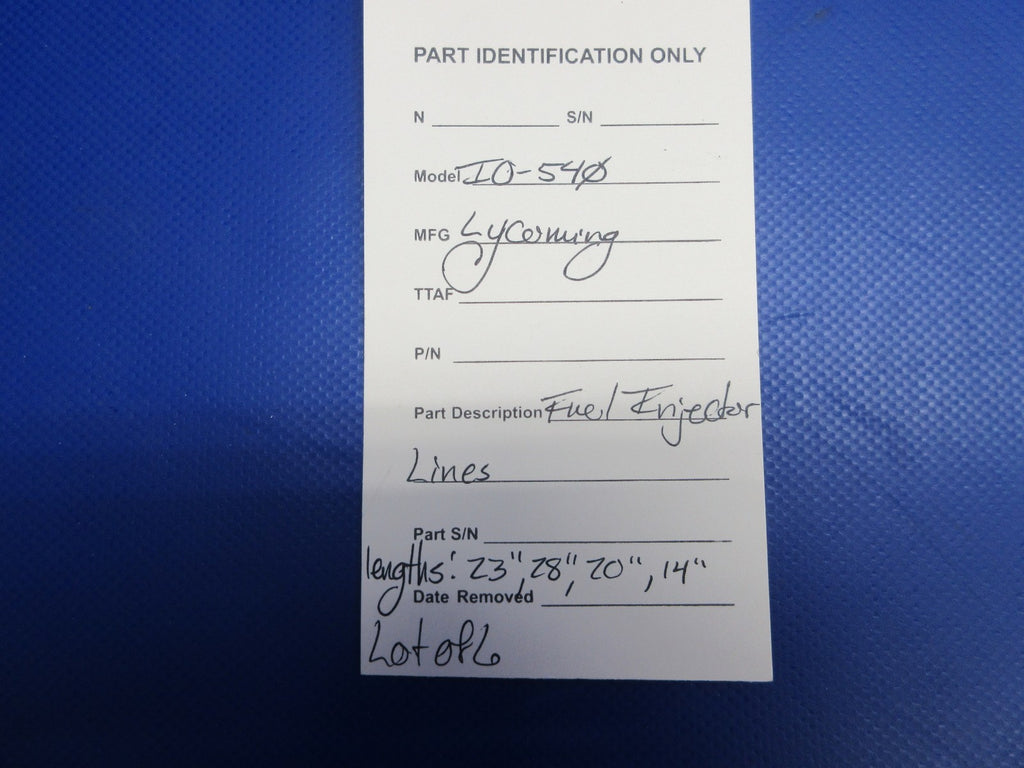 PART IDENTIFICATION ONLY
N S/N
Model IO-540
MFG Lycoming
TTAF
P/N
Part Description Fuel Injector
Lines
Part S/N
lengths: 23", 28", 20", 14"
Date Removed
Lot of 6